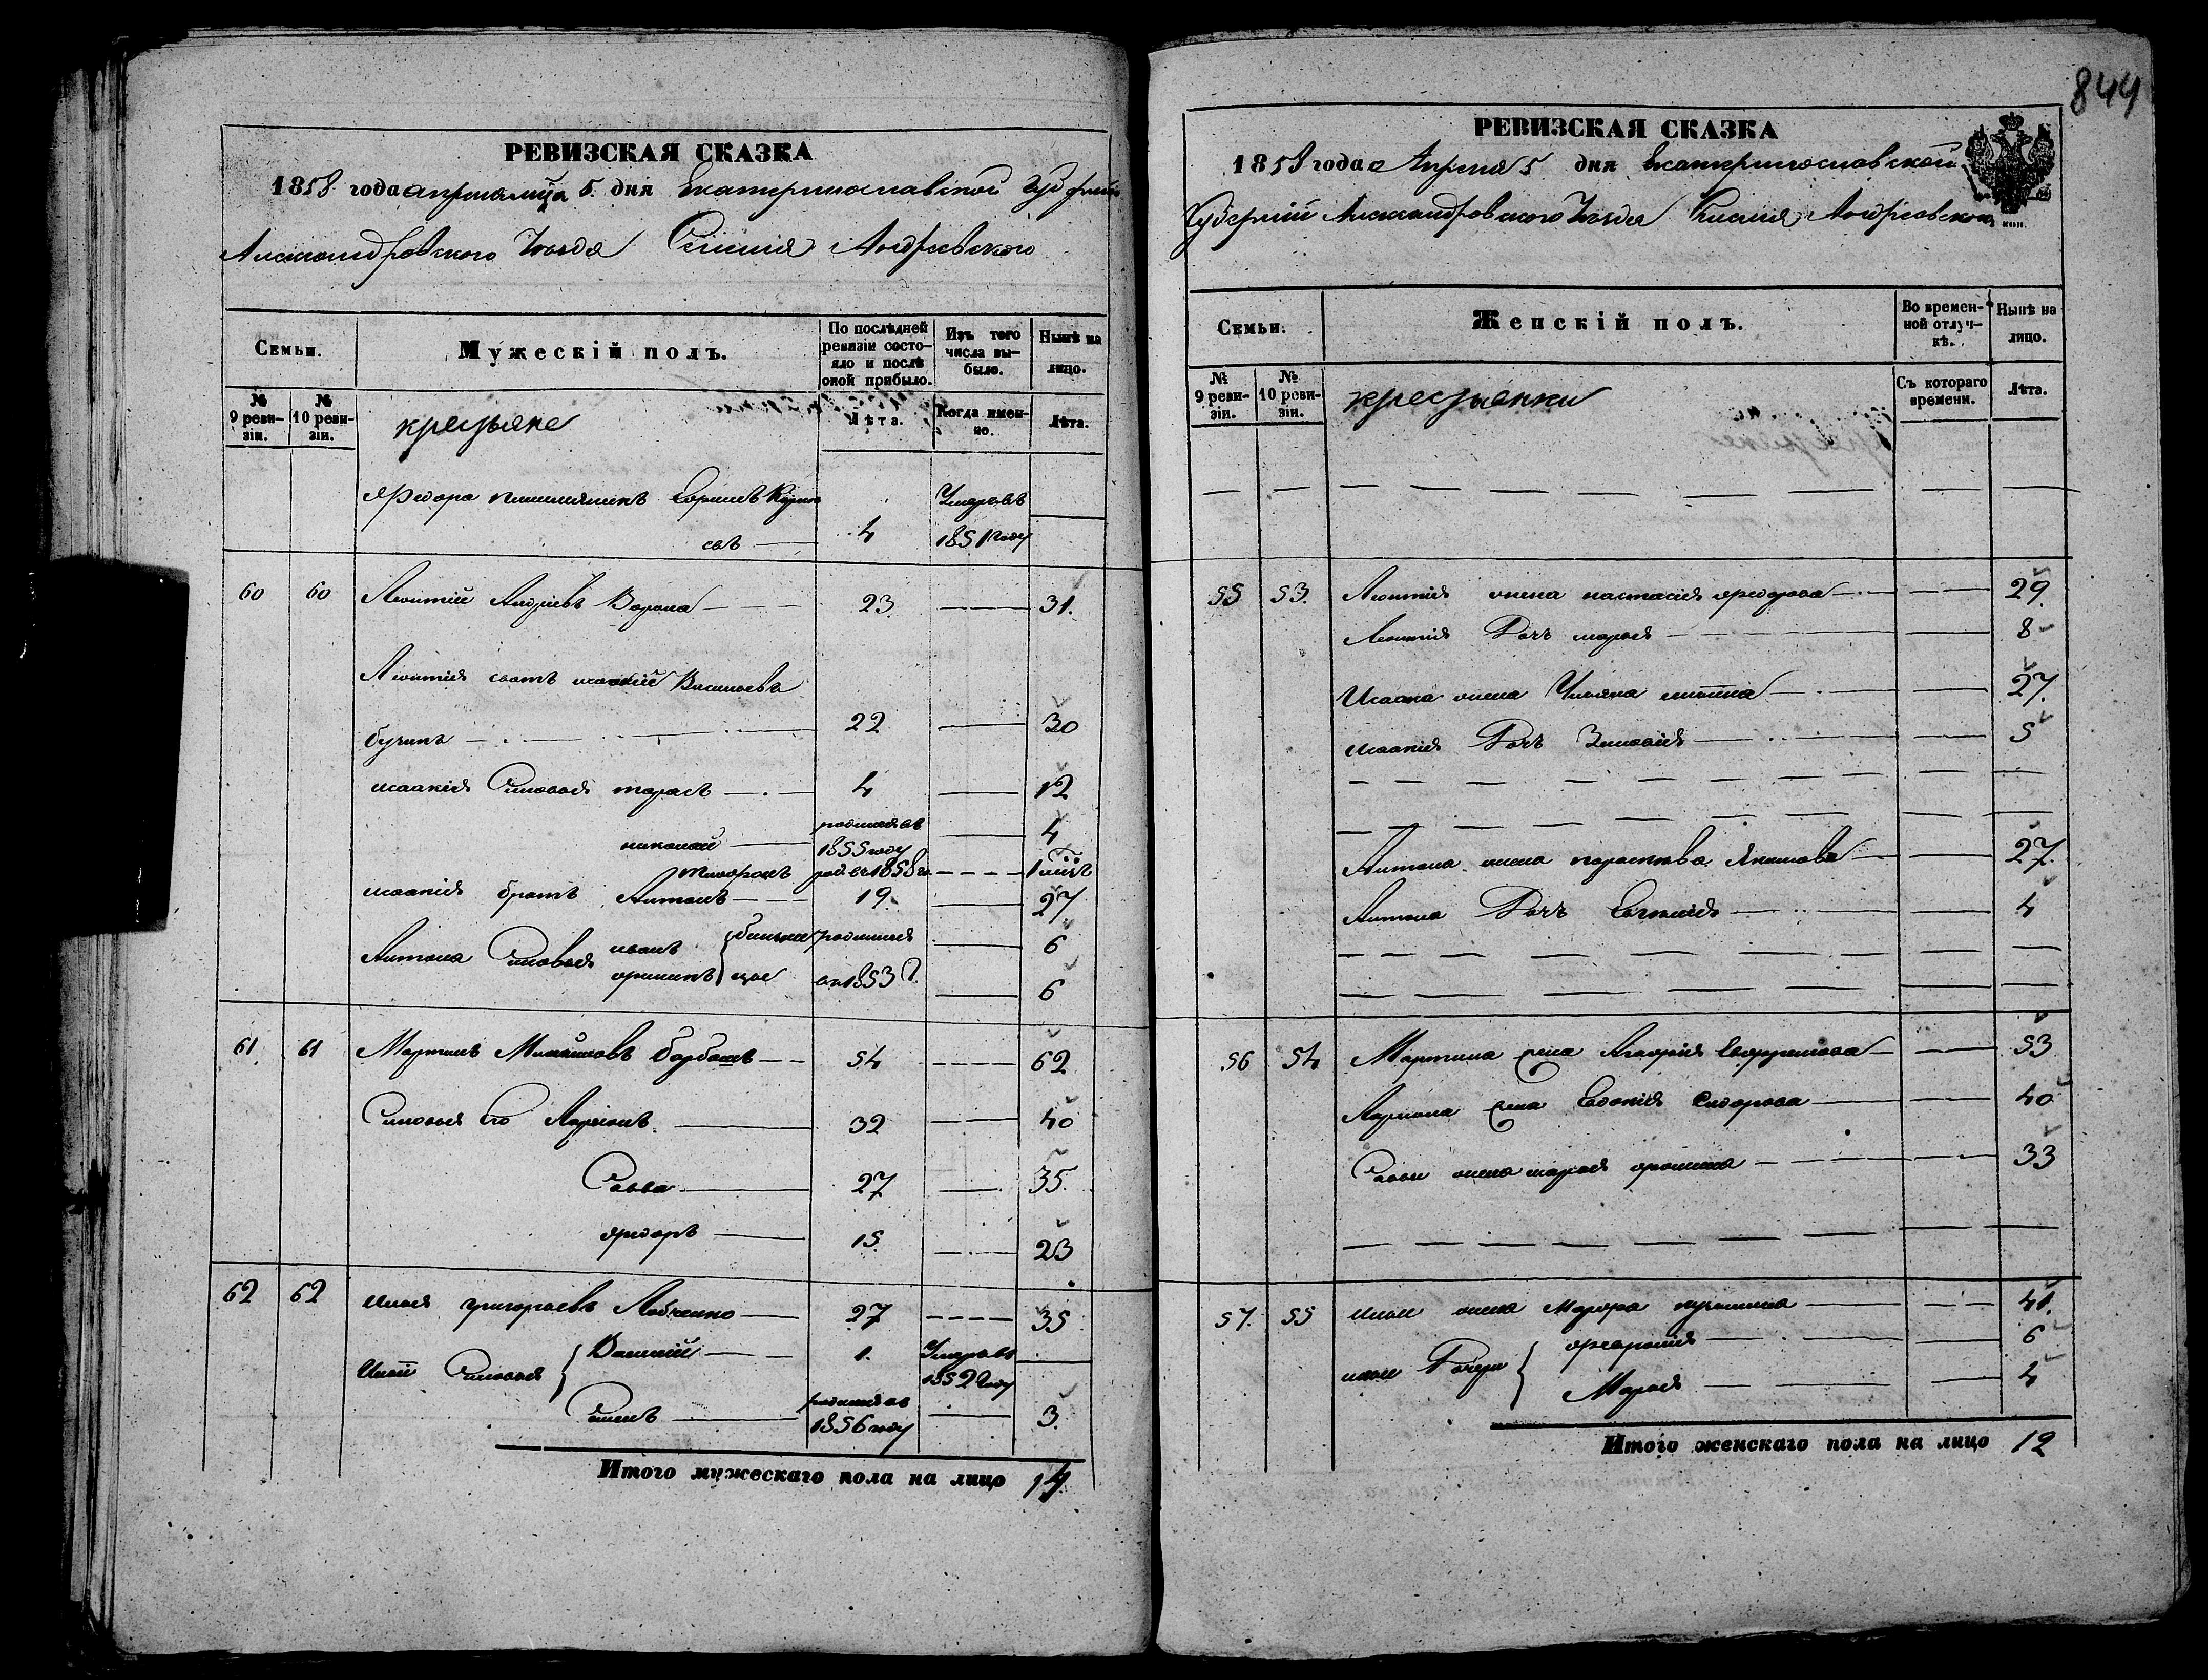 844
РЕВИЗСКАЯ СКАЗКА
1858 года апреля мца 5 дня Екатеринославской губернии
Александровского Уезда Селения Андреевского
Семьи.
Мужескій полъ.
По послѣдней ревизіи состо-
яло и послѣ
оной прибыло.
Изъ того
числа вы-
было.
Нынѣ на
лицо.
№
9 реви-
зіи.
№
10 реви-
зіи.
крестьяне
Лѣта.
Когда имен-
но.
Лѣта.
Федора племянникъ
4
Умеръ въ
1851 году
60 60 Леонтий Андреевъ Ворона 23 31
Леонтія зять Исаакий Васильевъ
22 30
Исаакія Сыновья Тарасъ 4 12
николай родился въ
1855 году 4
род въ 1858
Исаакія братъ Антонъ 19 27
Антона Сыновья иванъ близне родился 6
цые въ 1853 г. 6
61 61 Мартинъ Михайловъ Барбашъ 54 62
Сыновья его Ларіонъ 32 40
Савва 27 35
Федоръ 15 23
62 62 Илья григорьевъ 27 35
Ильи Сыновья Василий 1 Умеръ въ
1852 году
родился въ
1856 году 3
Итого мужескаго пола на лицо 14
РЕВИЗСКАЯ СКАЗКА
1858 года Апреля 5 дня Екатеринославской
Губерніи Александровского Уезда Селения Андреевского
коп.
Семьи.
Женскій полъ.
Во времен-
ной отлуч-
кѣ.
Нынѣ на
лицо.
№
9 реви-
зіи.
№
10 реви-
зіи.
крестьянки
Съ котораго
времени.
Лѣта.
55 53 Леонтія жена настасія Федорова 29
Леонтія Дочь марья 8
Исаакія жена Ульяна 27
Исаакія Дочь Зиновія 5
Антона жена параскева Якимова 27
Антона Дочь Евгенія 4
56 54 Мартина жена 53
Ларіона жена Евдокія Сидорова 40
Саввы жена марья 33
57 55 Ильи жена 41
Ильи Дочери 6
Марья 4
Итого женскаго пола на лицо 12